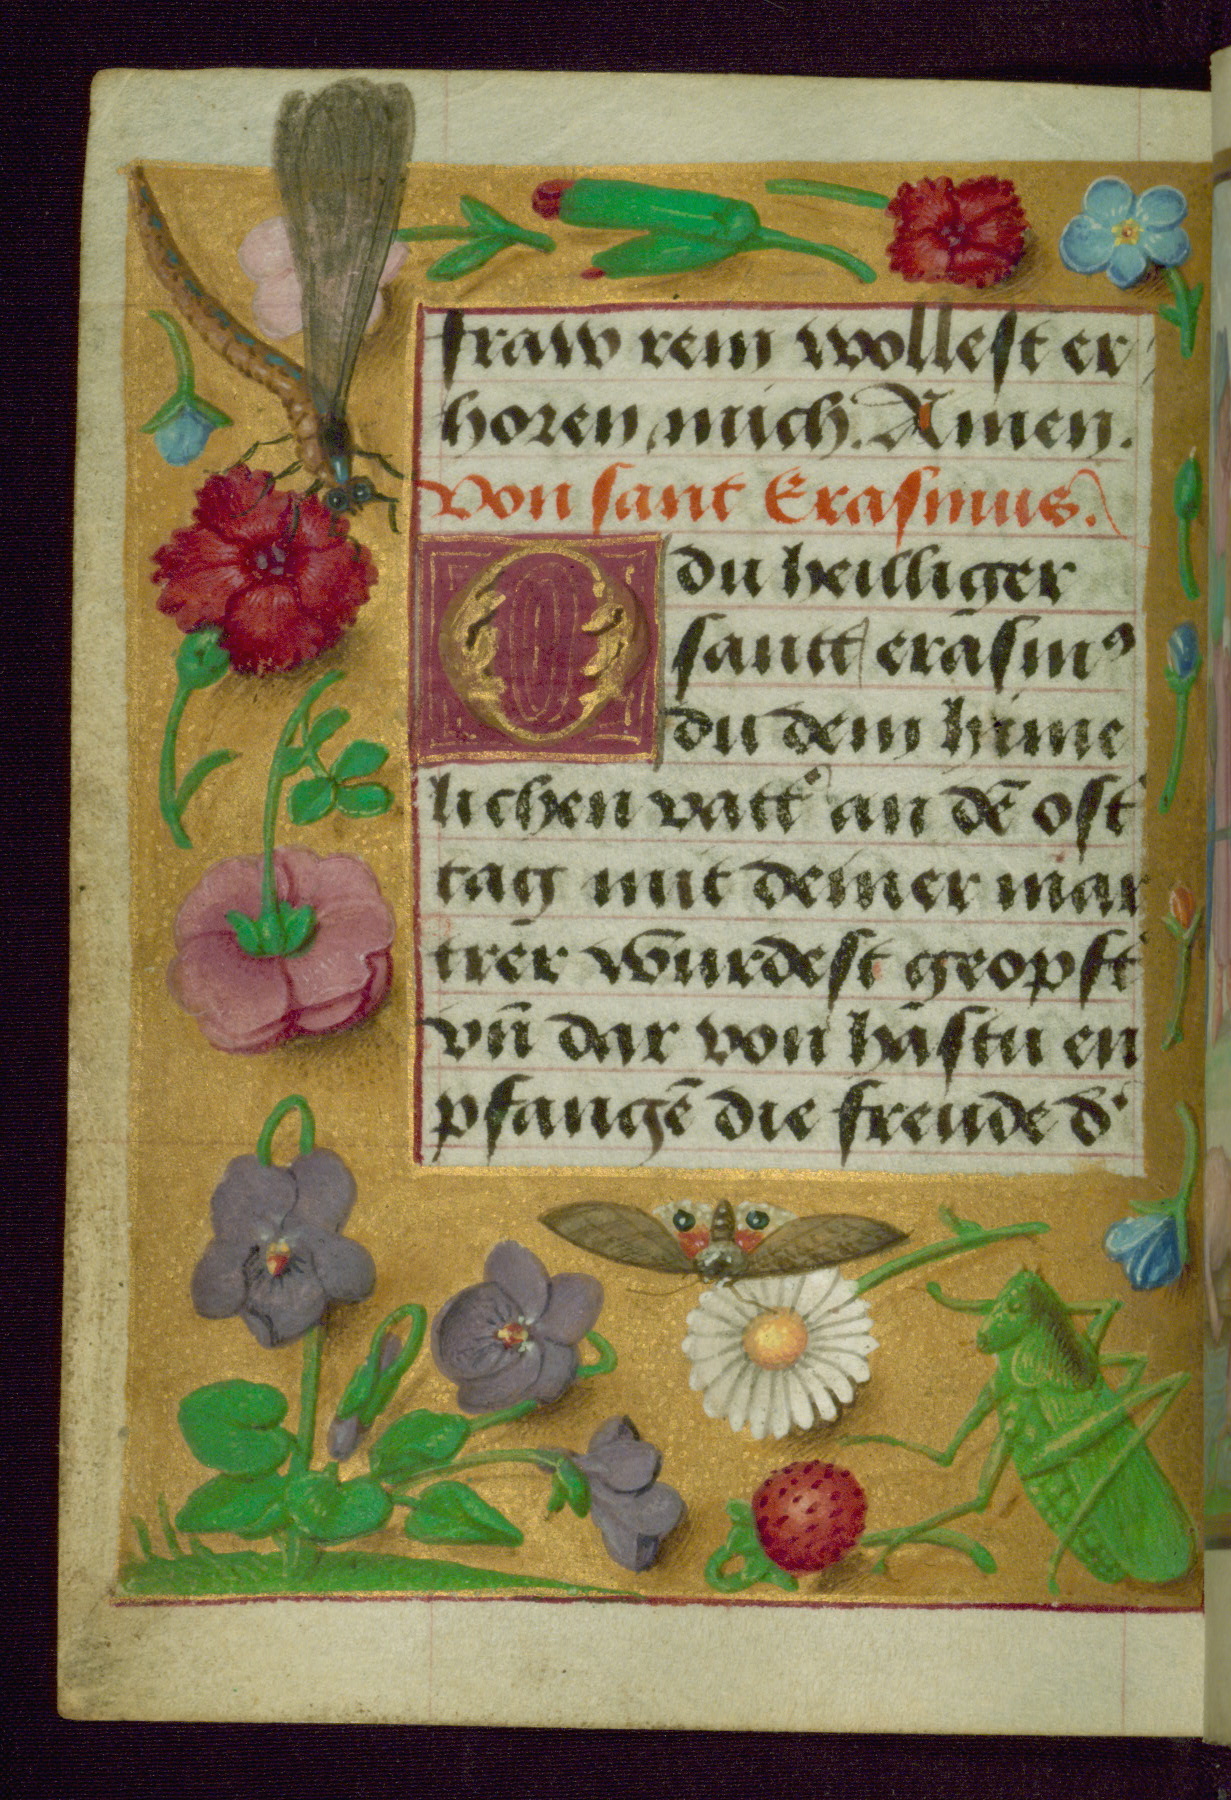 fraw rein wollest er
horen mich. Amen.
Von sant Erasmus.
O du heilliger
santt erāsmꝰ
du dem hime
lichen vatt' an dē ost
tag mit deiner mar
trer wurdest geopft
vn̄ dar von hāstu en
pfangē die freude d'